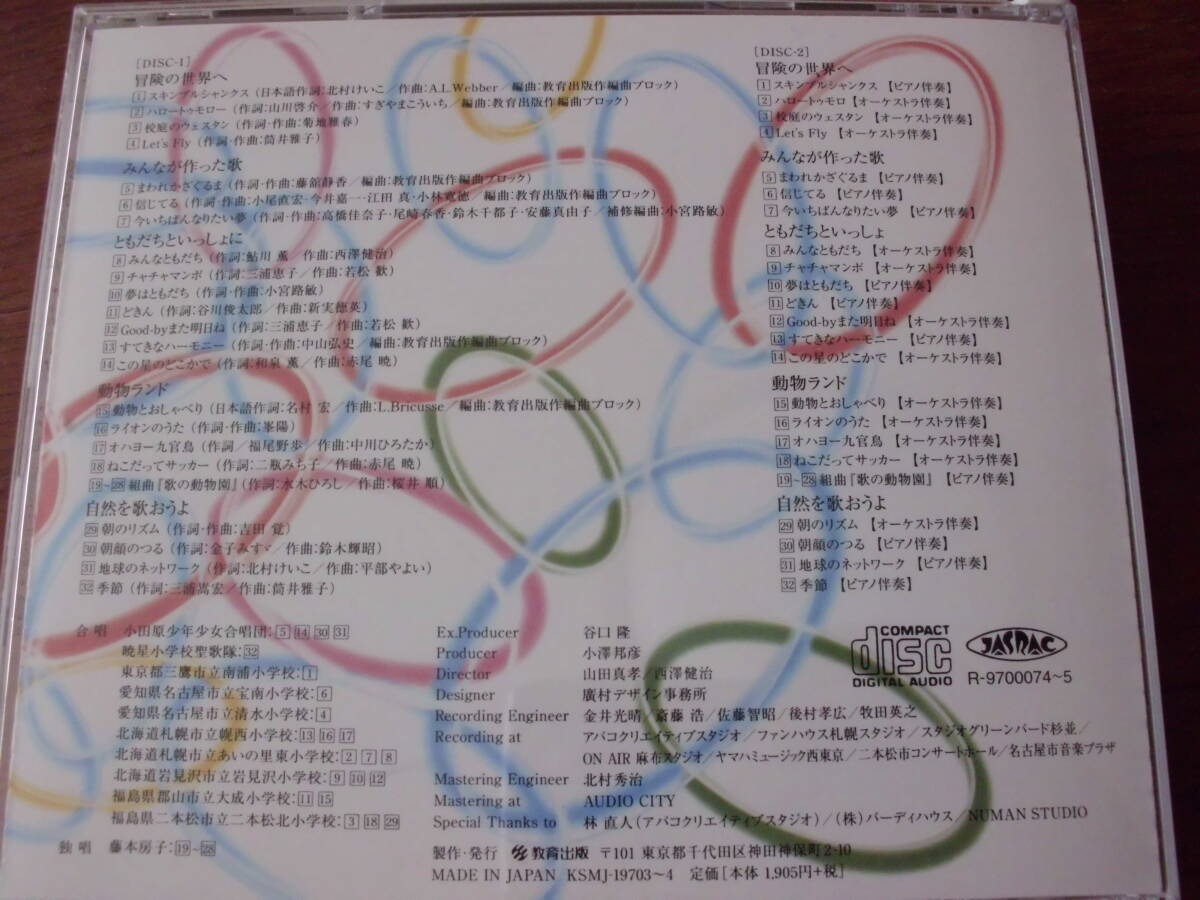 [DISC-1]
冒険の世界へ
1 スキンブルシャンクス (日本語作詞:北村けいこ/作曲:A.L.Webber/編曲:教育出版作編曲ブロック)
2 ハロートゥモロー (作詞:山川啓介/作曲:すぎやまこういち/編曲:教育出版作編曲ブロック)
3 校庭のウェスタン (作詞・作曲:菊地雅春)
4 Let's Fly (作詞・作曲:筒井雅子)
みんなが作った歌
5 まわれかざぐるま (作詞・作曲:藤舘静香/編曲:教育出版作編曲ブロック)
6 信じてる (作詞・作曲:小尾直宏・今井嘉一・江田 真・小林寛徳/編曲:教育出版作編曲ブロック)
7 今いちばんなりたい夢 (作詞・作曲:高橋佳奈子・尾崎春香・鈴木千都子・安藤真由子/補修編曲:小宮路敏)
ともだちといっしょに
8 みんなともだち (作詞:鮎川 薫/作曲:西澤健治)
9 チャチャマンボ (作詞:三浦恵子/作曲:若松 歓)
10 夢はともだち (作詞・作曲:小宮路敏)
11 どきん (作詞:谷川俊太郎/作曲:新実徳英)
12 Good-byまた明日ね (作詞:三浦恵子/作曲:若松 歓)
13 すてきなハーモニー (作詞・作曲:中山弘史/編曲:教育出版作編曲ブロック)
14 この星のどこかで (作詞:和泉 薫/作曲:赤尾 暁)
動物ランド
15 動物とおしゃべり (日本語作詞:名村 宏/作曲:L.Bricusse/編曲:教育出版作編曲ブロック)
16 ライオンのうた (作詞・作曲:峯陽)
17 オハヨー九官鳥 (作詞/福尾野歩/作曲:中川ひろたか)
18 ねこだってサッカー (作詞:二瓶みち子/作曲:赤尾 暁)
19~28 組曲『歌の動物園』 (作詞:水木ひろし/作曲:桜井 順)
自然を歌おうよ
29 朝のリズム (作詞・作曲:吉田 覚)
30 朝顔のつる (作詞:金子みすゞ/作曲:鈴木輝昭)
31 地球のネットワーク (作詞:北村けいこ/作曲:平部やよい)
32 季節 (作詞:三浦嵩宏/作曲:筒井雅子)
[DISC-2]
冒険の世界へ
1 スキンブルシャンクス 【ピアノ伴奏】
2 ハロートゥモロ 【オーケストラ伴奏】
3 校庭のウェスタン 【オーケストラ伴奏】
4 Let's Fly 【オーケストラ伴奏】
みんなが作った歌
5 まわれかざぐるま 【ピアノ伴奏】
6 信じてる 【ピアノ伴奏】
7 今いちばんなりたい夢 【ピアノ伴奏】
ともだちといっしょ
8 みんなともだち 【オーケストラ伴奏】
9 チャチャマンボ 【オーケストラ伴奏】
10 夢はともだち 【ピアノ伴奏】
11 どきん 【ピアノ伴奏】
12 Good-byまた明日ね 【オーケストラ伴奏】
13 すてきなハーモニー 【ピアノ伴奏】
14 この星のどこかで 【オーケストラ伴奏】
動物ランド
15 動物とおしゃべり 【オーケストラ伴奏】
16 ライオンのうた 【オーケストラ伴奏】
17 オハヨー九官鳥 【オーケストラ伴奏】
18 ねこだってサッカー 【オーケストラ伴奏】
19~28 組曲『歌の動物園』【ピアノ伴奏】
自然を歌おうよ
29 朝のリズム 【オーケストラ伴奏】
30 朝顔のつる 【ピアノ伴奏】
31 地球のネットワーク 【ピアノ伴奏】
32 季節 【ピアノ伴奏】
合唱 小田原少年少女合唱団:5 14 30 31
暁星小学校聖歌隊:32
東京都三鷹市立南浦小学校:1
愛知県名古屋市立宝南小学校:6
愛知県名古屋市立清水小学校:4
北海道札幌市立幌西小学校:13 16 17
北海道札幌市立あいの里東小学校:2 7 8
北海道岩見沢市立岩見沢小学校:9 10 12
福島県郡山市立大成小学校:11 15
福島県二本松市立二本松北小学校:3 18 29
独唱 藤本房子:19~28
Ex.Producer 谷口 隆
Producer 小澤邦彦
Director 山田真孝/西澤健治
Designer 廣村デザイン事務所
Recording Engineer 金井光晴/斎藤 浩/佐藤智昭/後村孝広/牧田英之
Recording at アバコクリエイティブスタジオ/ファンハウス札幌スタジオ/スタジオグリーンバード杉並/
ON AIR 麻布スタジオ/ヤマハミュージック西東京/二本松市コンサートホール/名古屋市音楽プラザ
Mastering Engineer 北村秀治
Mastering at AUDIO CITY
Special Thanks to 林 直人(アバコクリエイティブスタジオ)/(株)バーディハウス/NUMAN STUDIO
製作・発行 教育出版 〒101 東京都千代田区神田神保町2-10
MADE IN JAPAN KSMJ-19703~4 定価[本体 1,905円+税]
COMPACT
disc
DIGITAL AUDIO
JASRAC
R-9700074~5